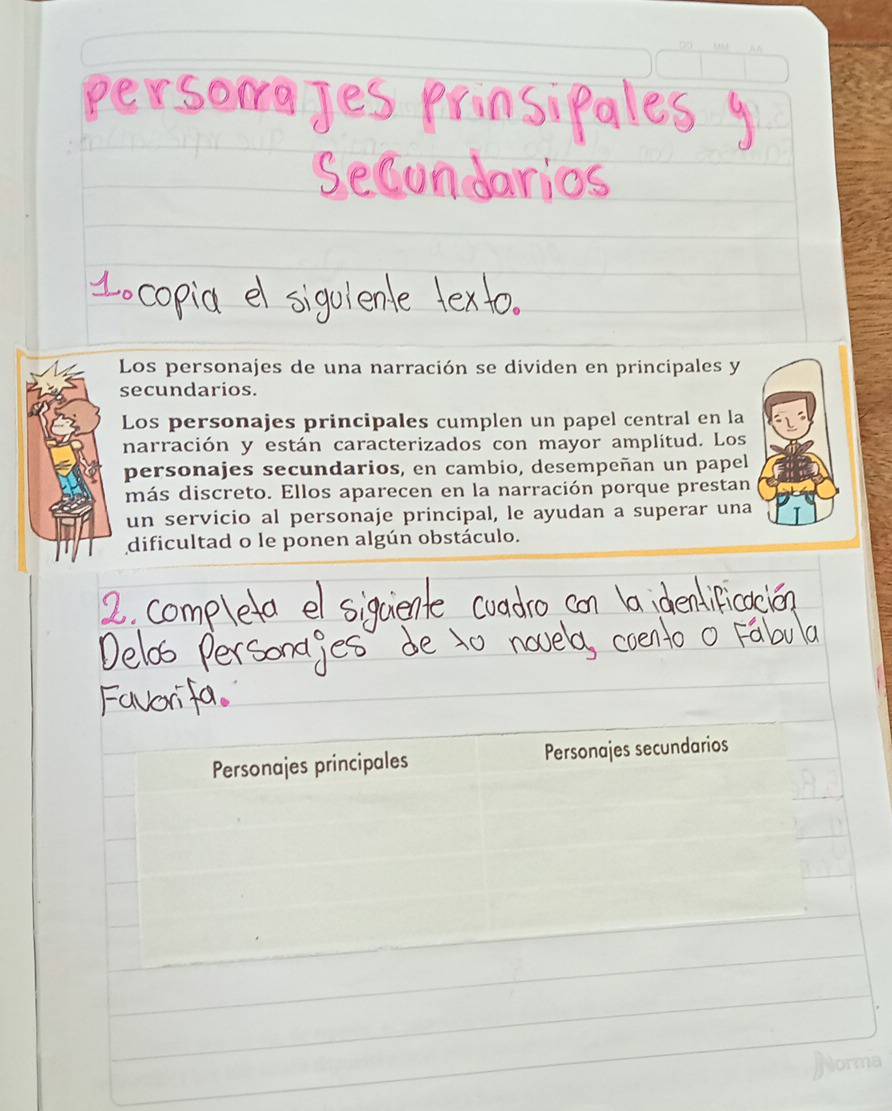 DD MM AA
personajes prinsipales y
Secundarios
1. copia el siguiente texto.
Los personajes de una narración se dividen en principales y
secundarios.
Los personajes principales cumplen un papel central en la
narración y están caracterizados con mayor amplitud. Los
personajes secundarios, en cambio, desempeñan un papel
más discreto. Ellos aparecen en la narración porque prestan
un servicio al personaje principal, le ayudan a superar una
dificultad o le ponen algún obstáculo.
2. completa el siguiente cuadro con la identificación
Delos Personajes de to novela, coento o Fábula
Favorita.
Personajes principales Personajes secundarios
Norma